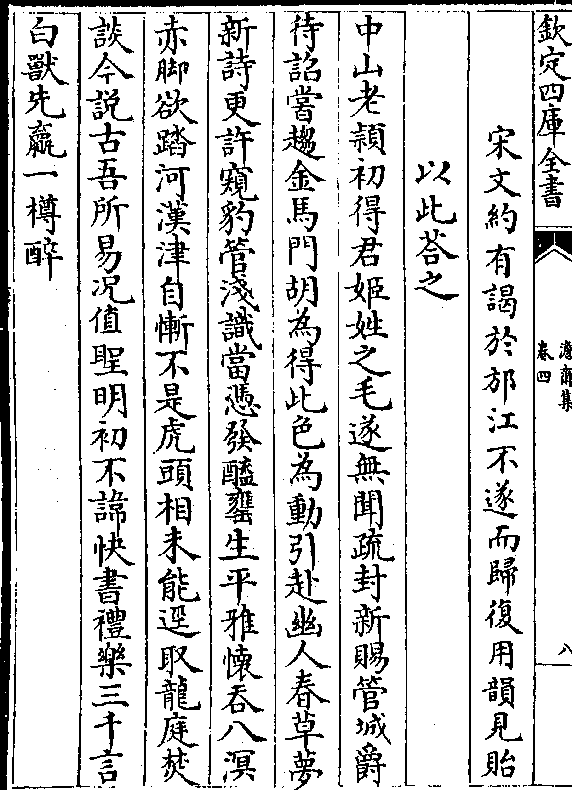 欽定四庫全書
澹齋集
卷四
八
宋文約有謁於邡江不遂而歸復用韻見貽
以此荅之
中山老穎初得君姬姓之毛遂無聞疏封新賜管城爵
待詔嘗趨金馬門胡為得此色為動引赴幽人春草夢
新詩更許窺豹管淺識當憑發醯甕生平雅懷吞八溟
赤脚欲踏河漢津自慚不是虎頭相未能逕取龍庭焚
談今説古吾所易况值聖明初不諱快書禮樂三千言
白獸先羸一樽醉